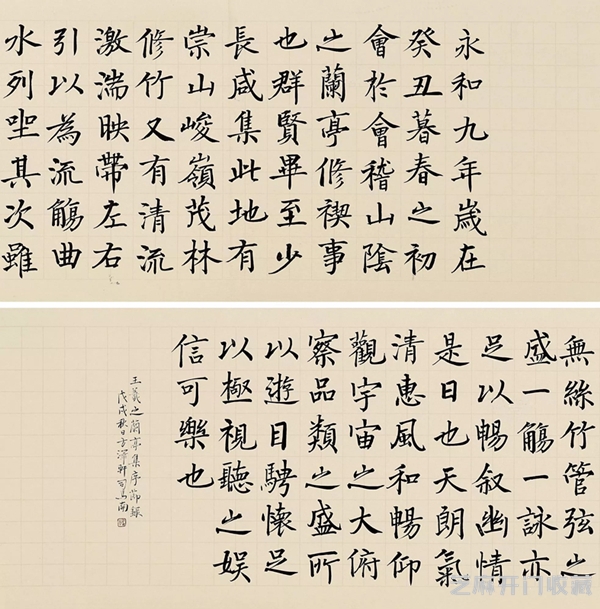 永和九年歲在
癸丑暮春之初
會於會稽山陰
之蘭亭修禊事
也群賢畢至少
長咸集此地有
崇山峻嶺茂林
修竹又有清流
激湍映帶左右
引以為流觴曲
水列坐其次雖
無絲竹管弦之
盛一觴一詠亦
足以暢叙幽情
是日也天朗氣
清惠風和暢仰
觀宇宙之大俯
察品類之盛所
以遊目騁懷足
以極視聽之娛
信可樂也
王羲之蘭亭集序節録
戊戌秋日方澤軒司馬南
芝麻开门收藏